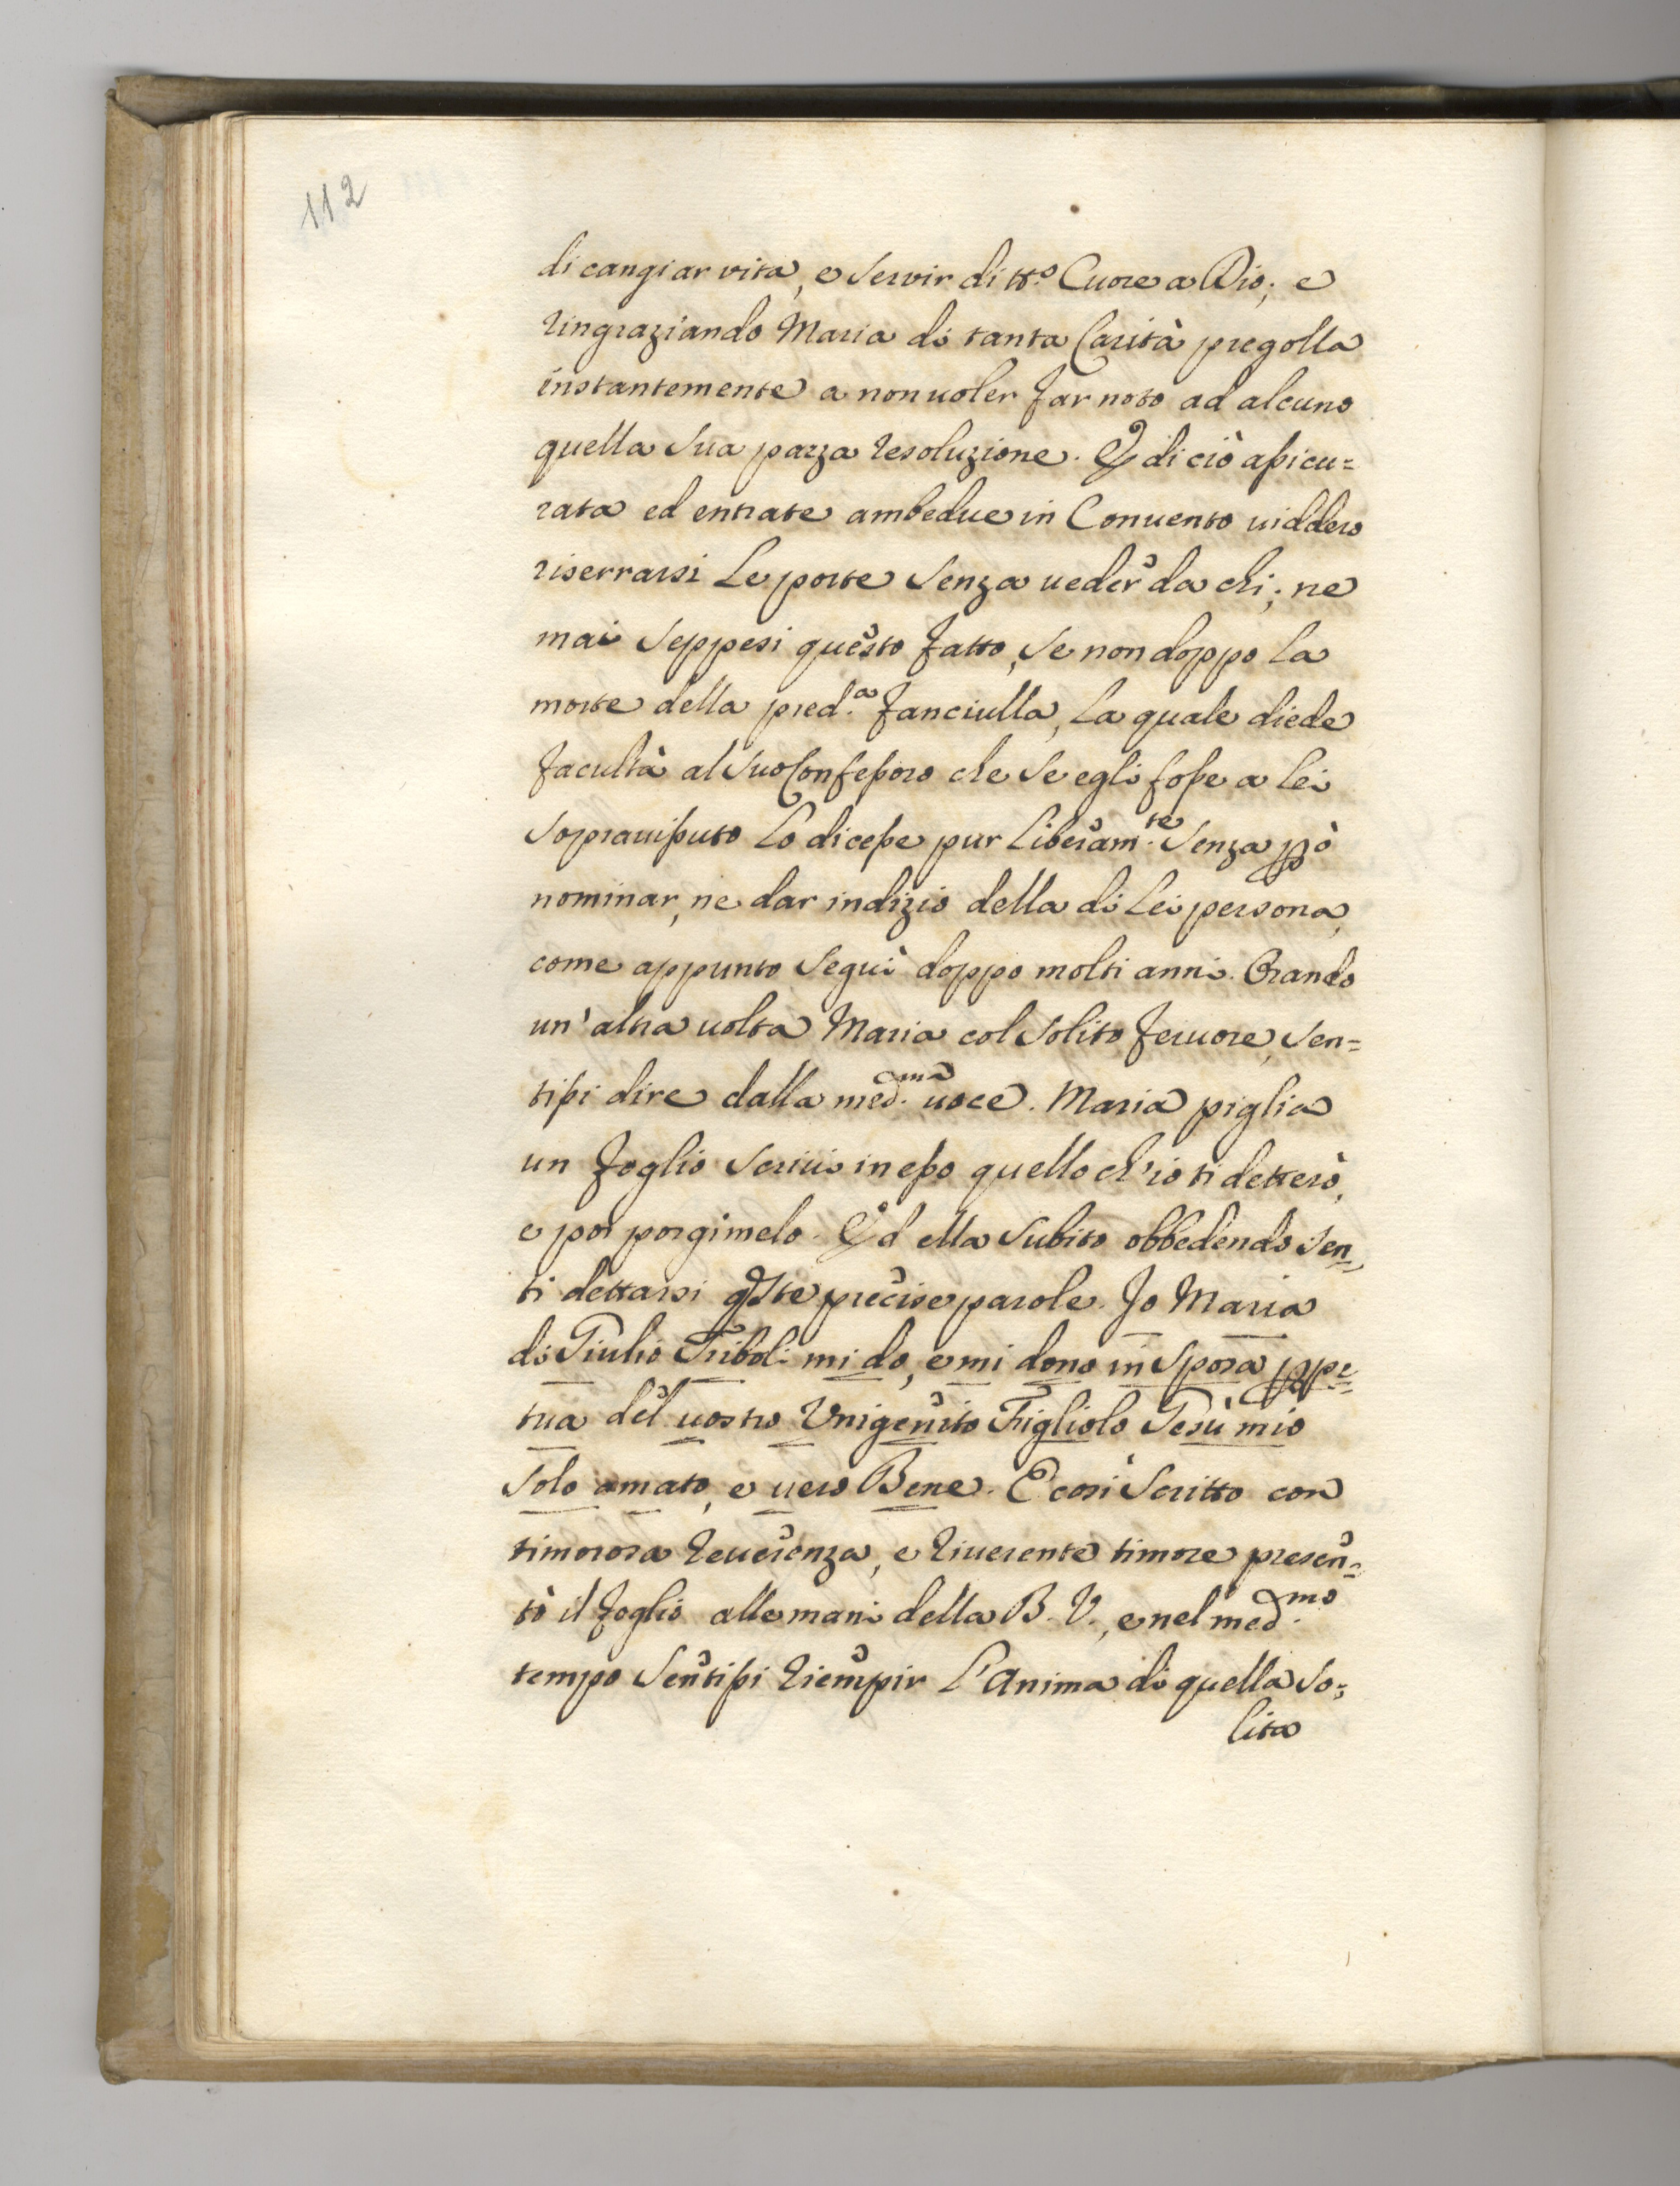 112
di cangiar vita, e servir di tt.º Cuore a Dio; e
ringraziando Maria di tanta Carità pregolla
instantemente a non uoler far noto ad alcuno
quella sua pazza resoluzione. E di ciò assicu=
rata ed entrate ambedue in Conuento uiddero
riserrarsi le porte senza ueder da chi; ne
mai seppesi questo fatto, se non doppo la
morte della pred.ª fanciulla, la quale diede
facultà al suo Confessoro che se egli fosse a lei
soprauissuto lo dicesse pur liberam.te senza pò
nominar, ne dar indizio della di lei persona,
come appunto seguì doppo molti anni. Orando
un' altra uolta Maria col solito feruore, sen=
tissi dire dalla med.ma uoce. Maria piglia
un foglio scriui in esso quello ch'io ti detterò,
e poi porgimelo. Ed ella subito obbedendo sen=
ti dettarsi qste precise parole. Io Maria
di Giulio Triboli mi do, e mi dono in sposa ppe=
tua del uostro Unigenito Figliolo Gesù mio
solo amato, e uero Bene. E così scritto con
timorosa reuerenza, e riuerente timore presen=
tò il foglio alle mani della B. V., e nel med.mo
tempo sentissi riempir l'Anima di quella so=
lita